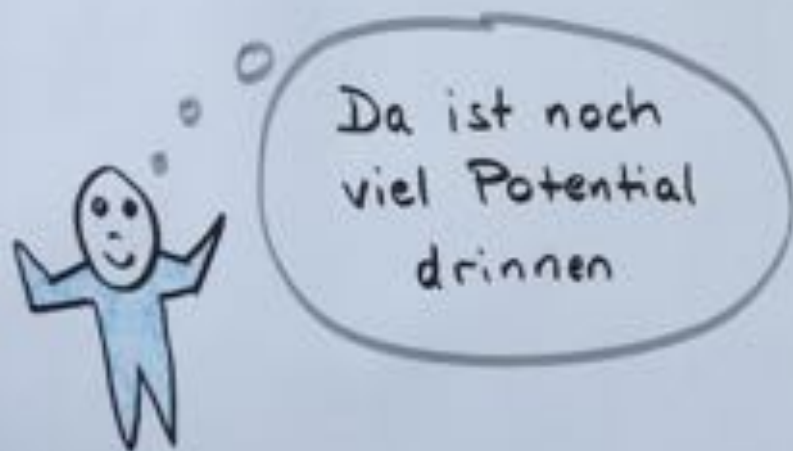 Da ist noch
viel Potential
drinnen